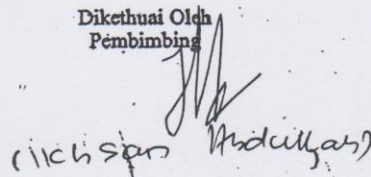 Dikethuai Oleh
Pembimbing
(Ilchsan Abdullah)